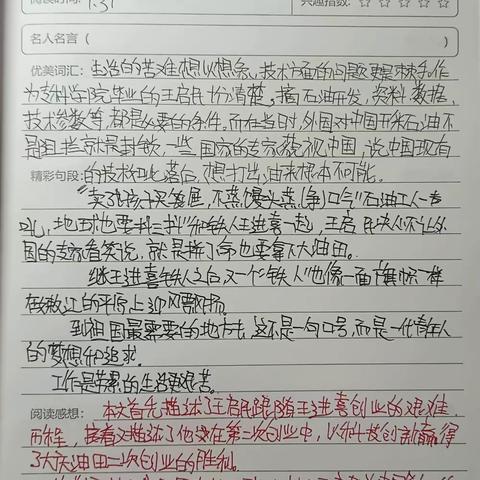 阅读时间: 1.31 兴趣指数: ☆ ☆ ☆ ☆ ☆
名人名言 ( )
优美词汇: 生活的苦难想以想象,技术方面的问题更是棘手,作
为专科学院毕业的王启民十分清楚,搞石油开发,资料、数据、
技术参数等,都是必要的条件,而在当时,外国对中国开采石油不
是阻拦就是封锁,一些国家的专家藐视中国,说中国现有
精彩句段: 的技术如此落后,想打出油来根本不可能。
"卖了孩子买笼屉,不蒸馒头蒸(争)口气""石油工人一声
吼,地球也要抖三抖"和铁人王进喜一起,王启民决心不让外
国的专家看笑说,就是拼了命也要拿下大油田。
继王进喜铁人之后又一个"铁人"也像一面旗帜一样
在松辽的平原上迎风飘扬。
到祖国最需要的地方去,这不是一句口号,而是一代青年人
的梦想和追求。
工作是苦累的生活更艰苦。
阅读感想: 本文首先描述了王启民跟随王进喜创业的艰难
历程,接着又描述了他在第二次创业中,以科技创新赢得
了大庆油田二次创业的胜利。